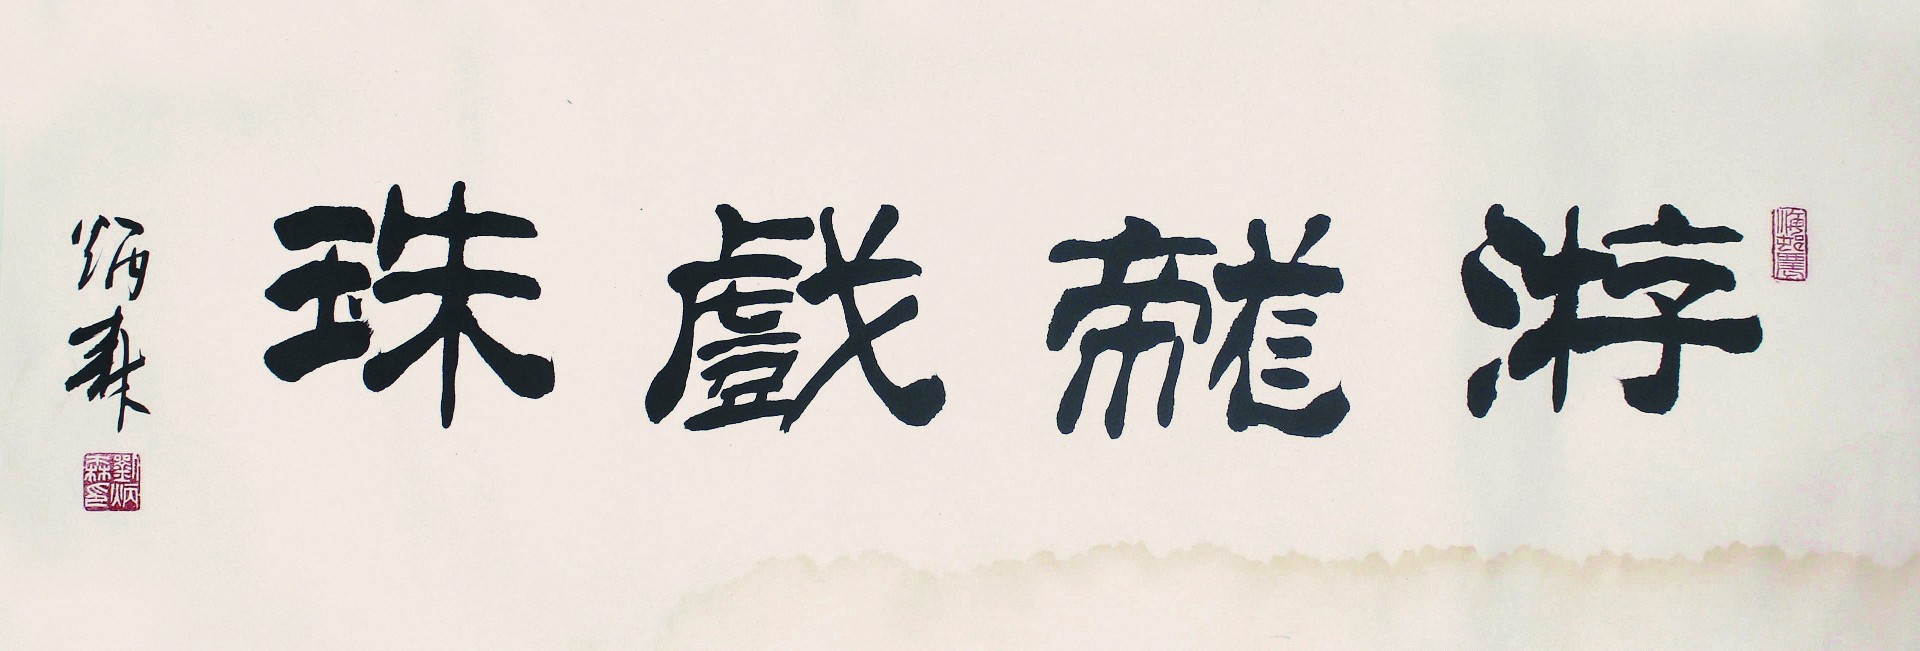 游龍戲珠
炳森
劉炳森印